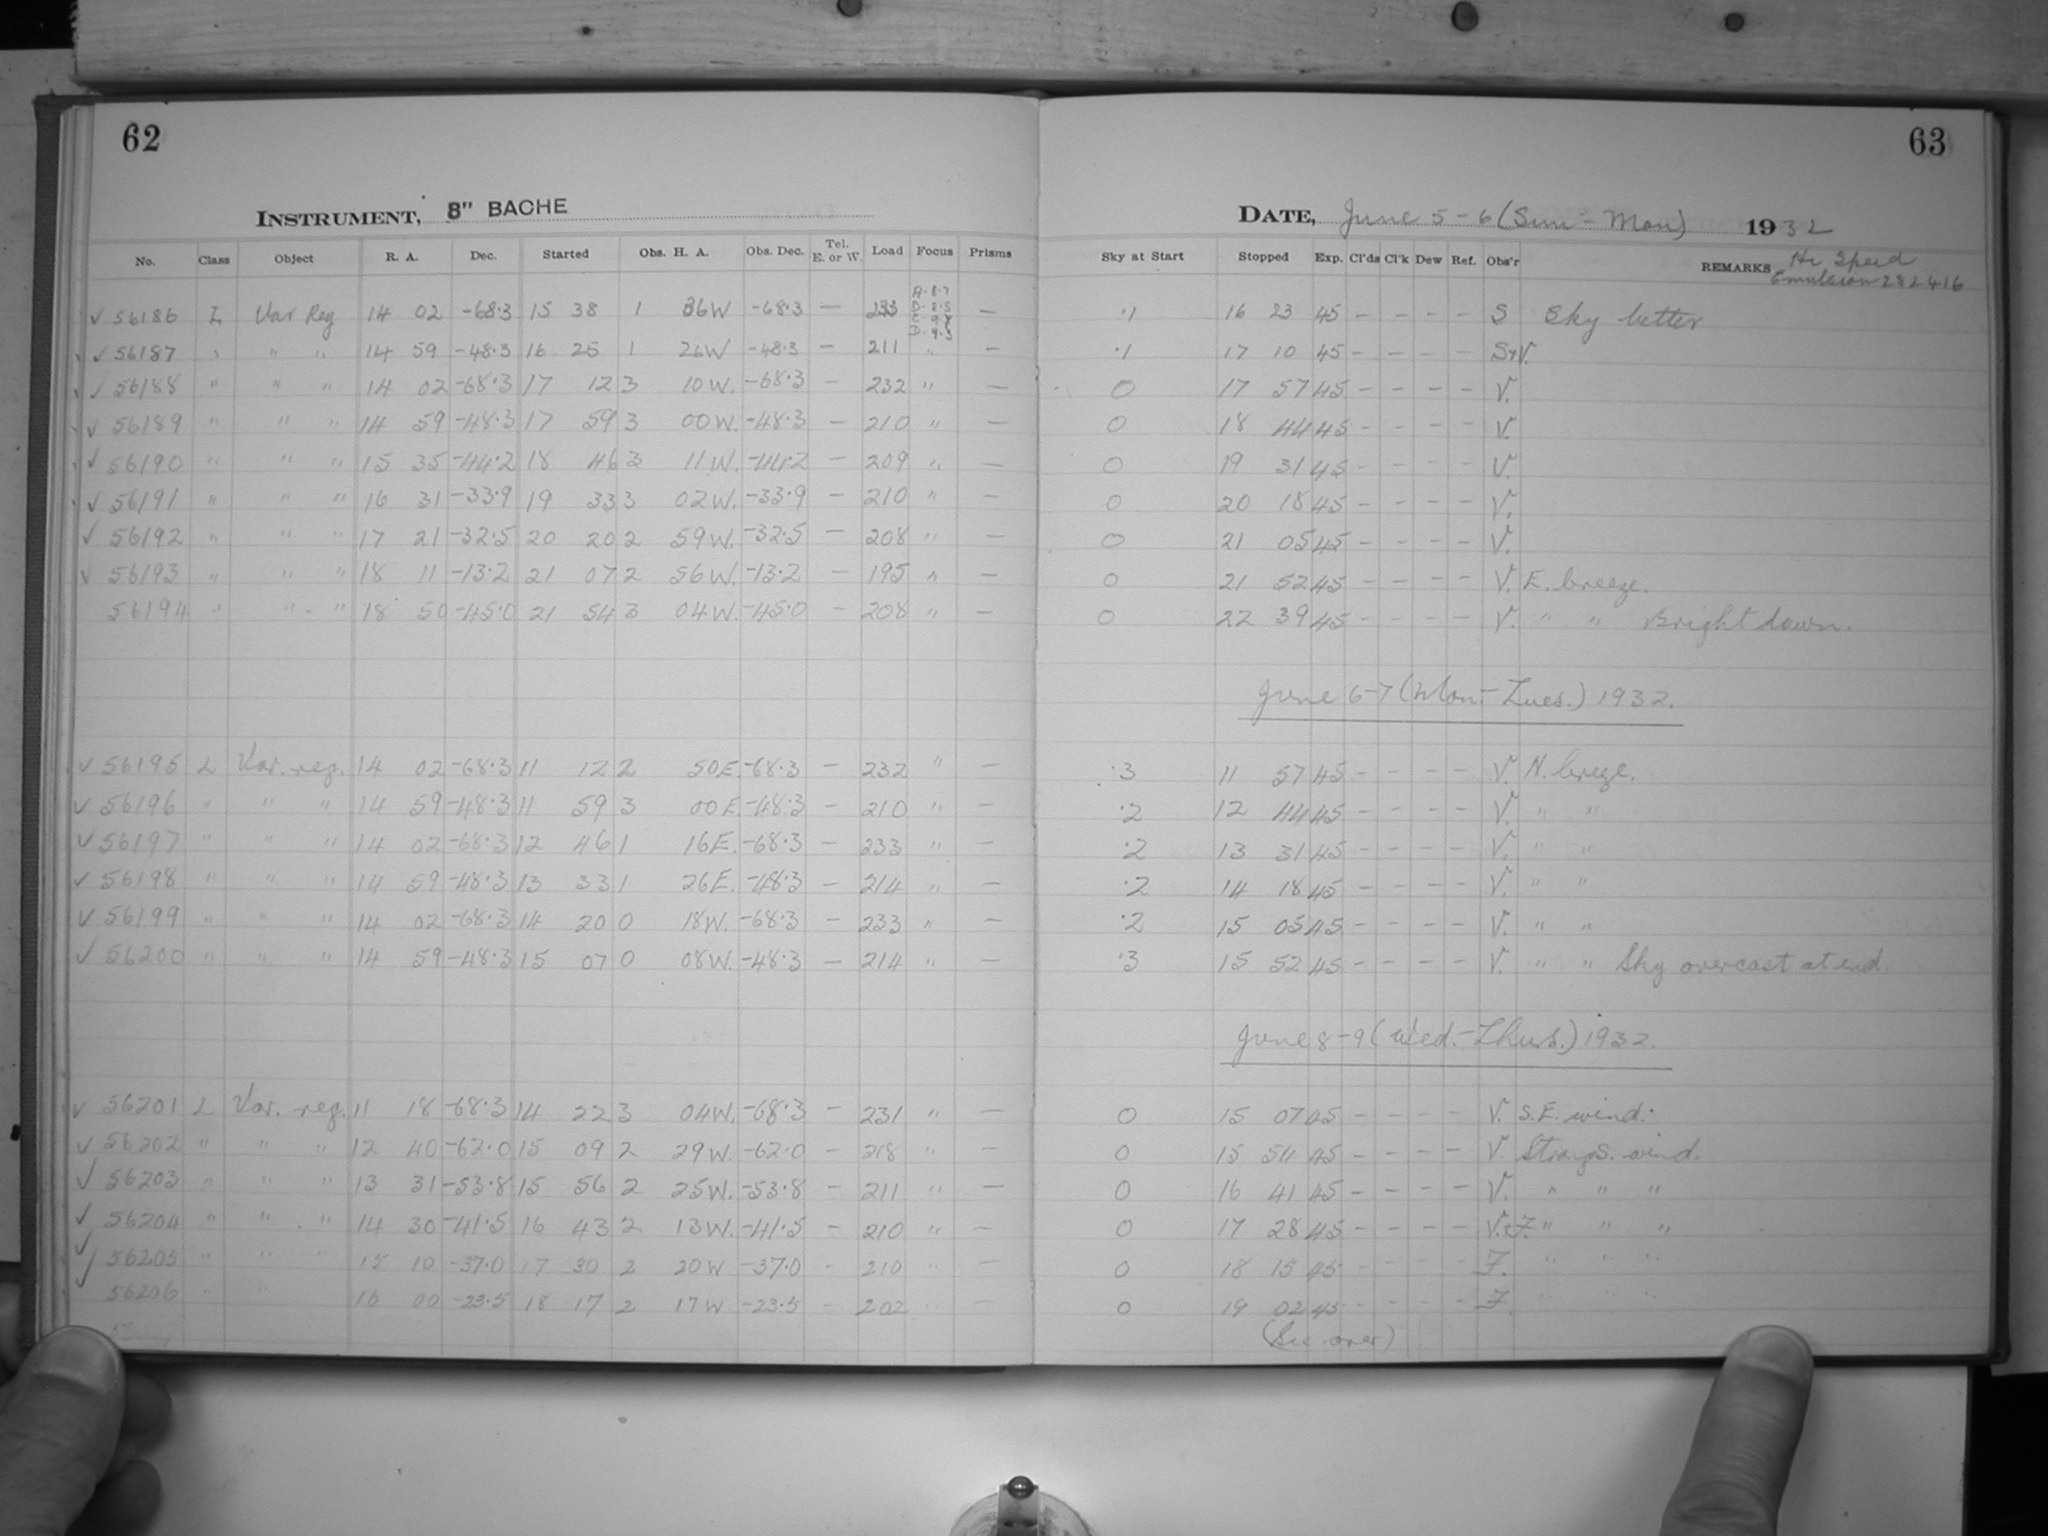 62
INSTRUMENT, 8" BACHE
No. Class Object R. A. Dec. Started Obs. H. A. Obs. Dec. Tel. E. or W. Load Focus Prisms
A - 8.7
56186 L Var Reg 14 02 -68.3 15 38 1 36W -68.3 — 233 —
√ 56187 " " " 14 59 -48.3 16 25 1 26W -48.3 — 211 " —
√ 56188 " " " 14 02 -68.3 17 12 3 10W. -68.3 — 232 " —
√ 56189 " " " 14 59 -48.3 17 59 3 00W. -48.3 — 210 " —
√ 56190 " " " 15 35 -44.2 18 46 3 11W. -44.2 — 209 " —
√ 56191 " " " 16 31 -33.9 19 33 3 02W. -33.9 — 210 " —
√ 56192 " " " 17 21 -32.5 20 20 2 59W. -32.5 — 208 " —
√ 56193 " " " 18 11 -13.2 21 07 2 56W. -13.2 — 195 " —
56194 " " " 18 50 -45.0 21 54 3 04W. -45.0 — 208 " —
√ 56195 L Var. reg. 14 02 -68.3 11 12 2 50E. -68.3 — 232 " —
√ 56196 " " " 14 59 -48.3 11 59 3 00E. -48.3 — 210 " —
√ 56197 " " " 14 02 -68.3 12 46 1 16E. -68.3 — 233 " —
√ 56198 " " " 14 59 -48.3 13 33 1 26E. -48.3 — 214 " —
√ 56199 " " " 14 02 -68.3 14 20 0 18W. -68.3 — 233 " —
√ 56200 " " " 14 59 -48.3 15 07 0 08W. -48.3 — 214 " —
√ 56201 L Var. reg. 11 18 -68.3 14 22 3 04W. -68.3 — 231 " —
√ 56202 " " " 12 40 -62.0 15 09 2 29W. -62.0 — 218 " —
√ 56203 " " " 13 31 -53.8 15 56 2 25W. -53.8 — 211 " —
√ 56204 " " " 14 30 -41.5 16 43 2 13W. -41.5 — 210 " —
√ 56205 " " " 15 10 -37.0 17 30 2 20W -37.0 - 210 " —
56206 " " 16 00 -23.5 18 17 2 17W -23.5 - 202 " —
63
DATE, June 5-6 (Sun - Mon) 1932
Sky at Start Stopped Exp. Cl'ds Cl'k Dew Ref. Obs'r REMARKS Hi Speed
Emulsion 282416
.1 16 23 45 - - - - S Sky better
.1 17 10 45 - - - - S+V.
0 17 57 45 - - - - V.
0 18 44 45 - - - - V.
0 19 31 45 - - - - V.
0 20 18 45 - - - - V.
0 21 05 45 - - - - V.
0 21 52 45 - - - - V. E. breeze.
0 22 39 45 - - - - V. " " Bright dawn.
June 6-7 (Mon. - Tues.) 1932.
.3 11 57 45 - - - - V. N. breeze.
.2 12 44 45 - - - - V. " "
.2 13 31 45 - - - - V. " "
.2 14 18 45 - - - - V. " "
.2 15 05 45 - - - - V. " "
.3 15 52 45 - - - - V. " " Sky overcast at end.
June 8-9 (Wed. - Thus.) 1932.
0 15 07 45 - - - - V. S.E. wind.
0 15 54 45 - - - - V. Strong S. wind.
0 16 41 45 - - - - V. " " "
0 17 28 45 - - - - " " "
0 18 15 45 - - - - F. " " "
0 19 02 45 - - - - F. " " "
(See over)